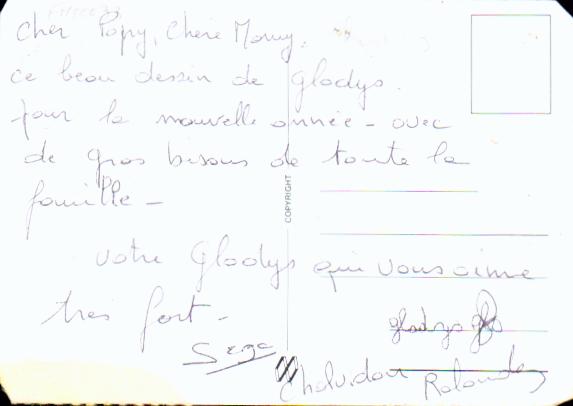 Cher Papy, Chère Mamy,
ce beau dessin de Gladys.
pour la nouvelle année - avec
de gros bisous de toute la
famille -
COPYRIGHT
votre Gladys qui vous aime
très fort -
gladys
Serge